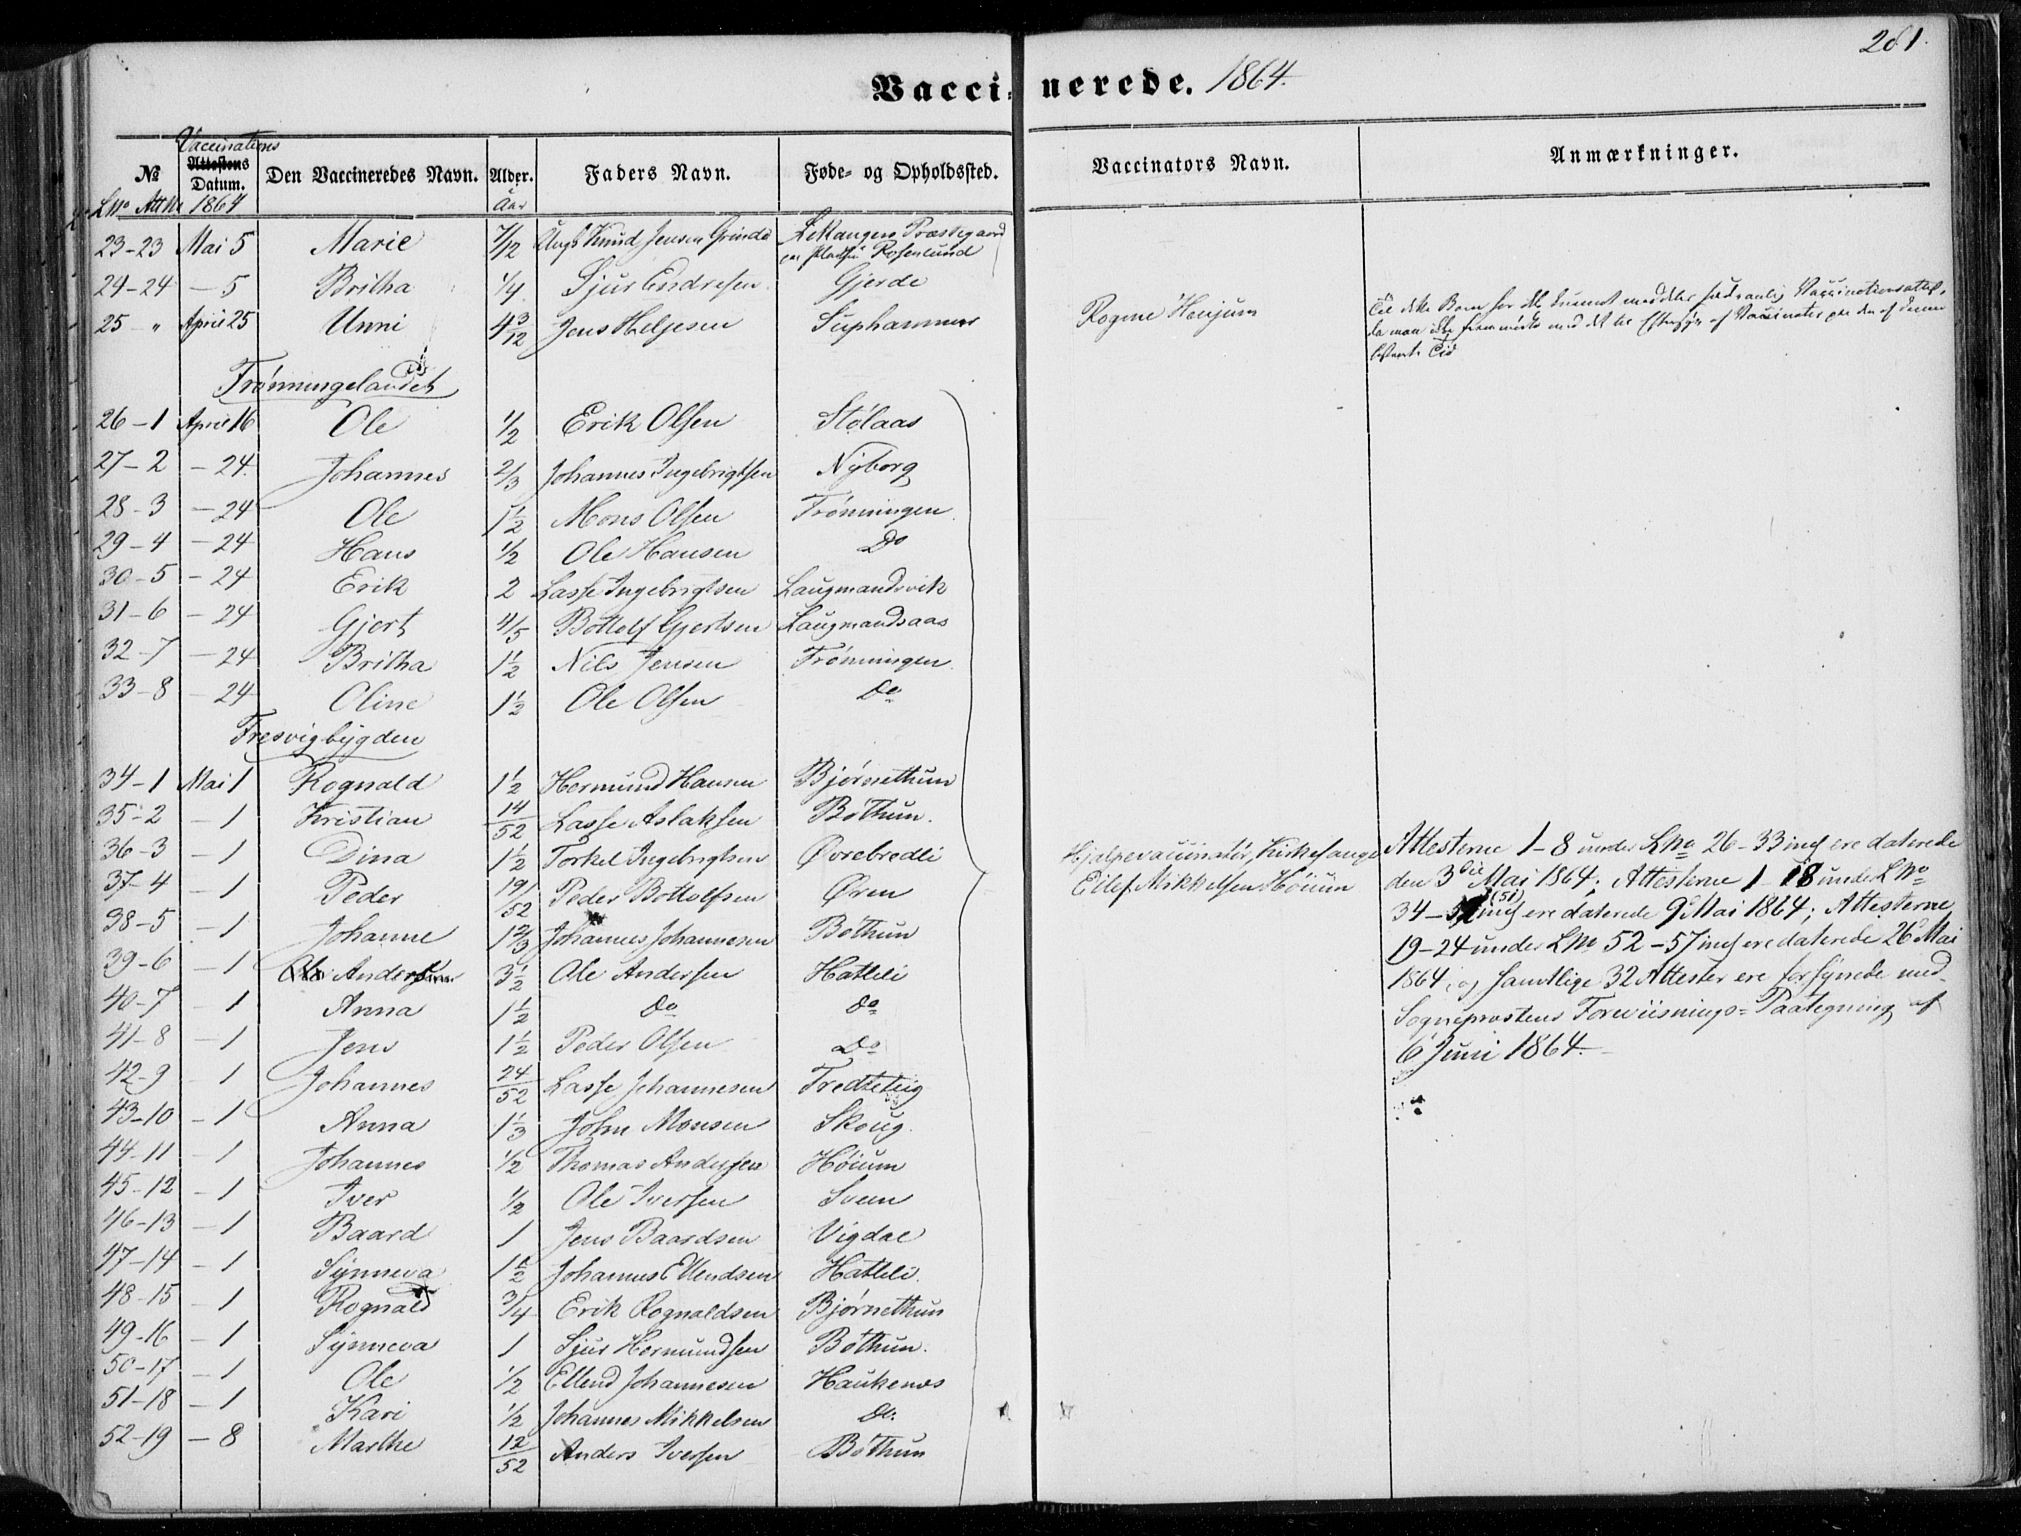 281.
Vaccinerede. 1864.
Vaccinations
№ Attestens Datum. Den Vaccineredes Navn. Alder. Faders Navn. Føde- og Opholdssted. Vaccinators Navn. Anmærkninger.
LNo AttNo 1864 Aar
23-23 Mai 5 Marie 7/12 Knud Jensen Grinde Leikanger Præstegaard
Rosenlund
24-24 - 5 Britha 1/4 Sjur Endresen Gjerde
25 " April 25 Unni 4 3/12 Jens Heljesen Suphammer Rogme Henjum
Frønningelandet
26-1 April 16 Ole 1/2 Erik Olsen Stølaas
27-2 - 24. Johannes 2/3 Johannes Ingebrigtsen Nyborg
28-3 - 24 Ole 1 1/2 Mons Olsen Frønningen
29-4 - 24 Hans 1/2 Ole Hansen Do
30-5 - 24 Erik 2 Lasse Ingebrigtsen Laugmandsvik
31-6 - 24 Gjert 4/5 Bottolf Gjertsen Laugmandsaas
32-7 - 24 Britha 1 1/2 Nils Jensen Frønningen
33-8 - 24 Oline 1 1/2 Ole Olsen Do
Fresvigbygden
34-1 Mai 1 Rognald 1 1/2 Hermund Hansen Bjørnethun
35-2 - 1 Kristian 14/52 Lasse Aslaksen Bøthun.
36-3 - 1 Dina 1 1/2 Torkel Ingebrigtsen Øvrebredli
37-4 - 1 Peder 19/52 Peder Bottolfsen Øren
38-5 - 1 Johanne 1 2/3 Johannes Johannesen Bøthun
39-6 - 1 Anders 3 1/2 Ole Andersen Hatleli
40-7 - 1 Anna 1 1/2 Do Do
41-8 - 1 Jens 1 1/2 Peder Olsen Do
42-9 - 1 Johannes 24/52 Lasse Johannesen Tredteteig
43-10 - 1 Anna 1 1/3 John Monsen Skoug.
44-11 - 1 Johannes 1/2 Thomas Andersen Høium
45-12 - 1 Iver 1/2 Ole Iversen Svem
46-13 - 1 Baard 1 Jens Baardsen Vigdal
47-14 - 1 Synneva 1 1/2 Johannes Ellendsen Hatleli.
48-15 - 1 Rognald 3/4 Erik Rognaldsen Bjørnethun
49-16 - 1 Synneva 1 Sjur Hermundsen Bøthun.
50-17 - 1 Ole 1/2 Ellend Johannesen Haukenes
51-18 - 1 Kari 1/2 Johannes Mikkelsen Do.
52-19 - 8 Marthe 12/52 Anders Iversen Bøthun
Hjælpevaccinatør, Kirkesanger
Eilef Mikkelsen Høium
Attesterne 1-8 under LNo 26-33 incl ere daterede
den 3die Mai 1864; Attesterne 1-18 under LNo
34- (51) incl ere daterede 9 Mai 1864; Attesterne
19-24 under LNo 52-57 incl ere daterede 26 Mai
1864; og samtlige 32 Attester ere forsynede med
Sogneprestens Foreviisnings-Paategning af
6 Juni 1864.